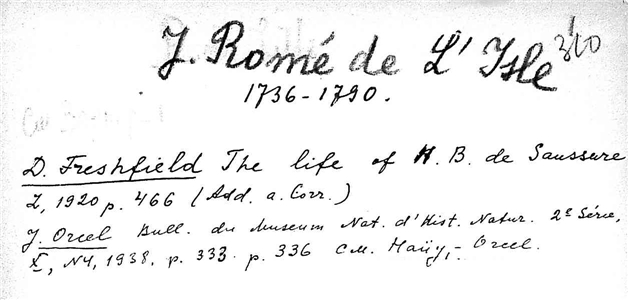 J. Romé de L'Isle 310
1736-1790.
D. Freshfield The life of H. B. de Saussure
I, 1920 p. 466 (Add. a. Corr.)
J. Orcel Bull. du Museum Nat. d'Hist. Natur. 2e Série,
X, N4, 1938. p. 333. p. 336 см. Haüy, - Orcel.